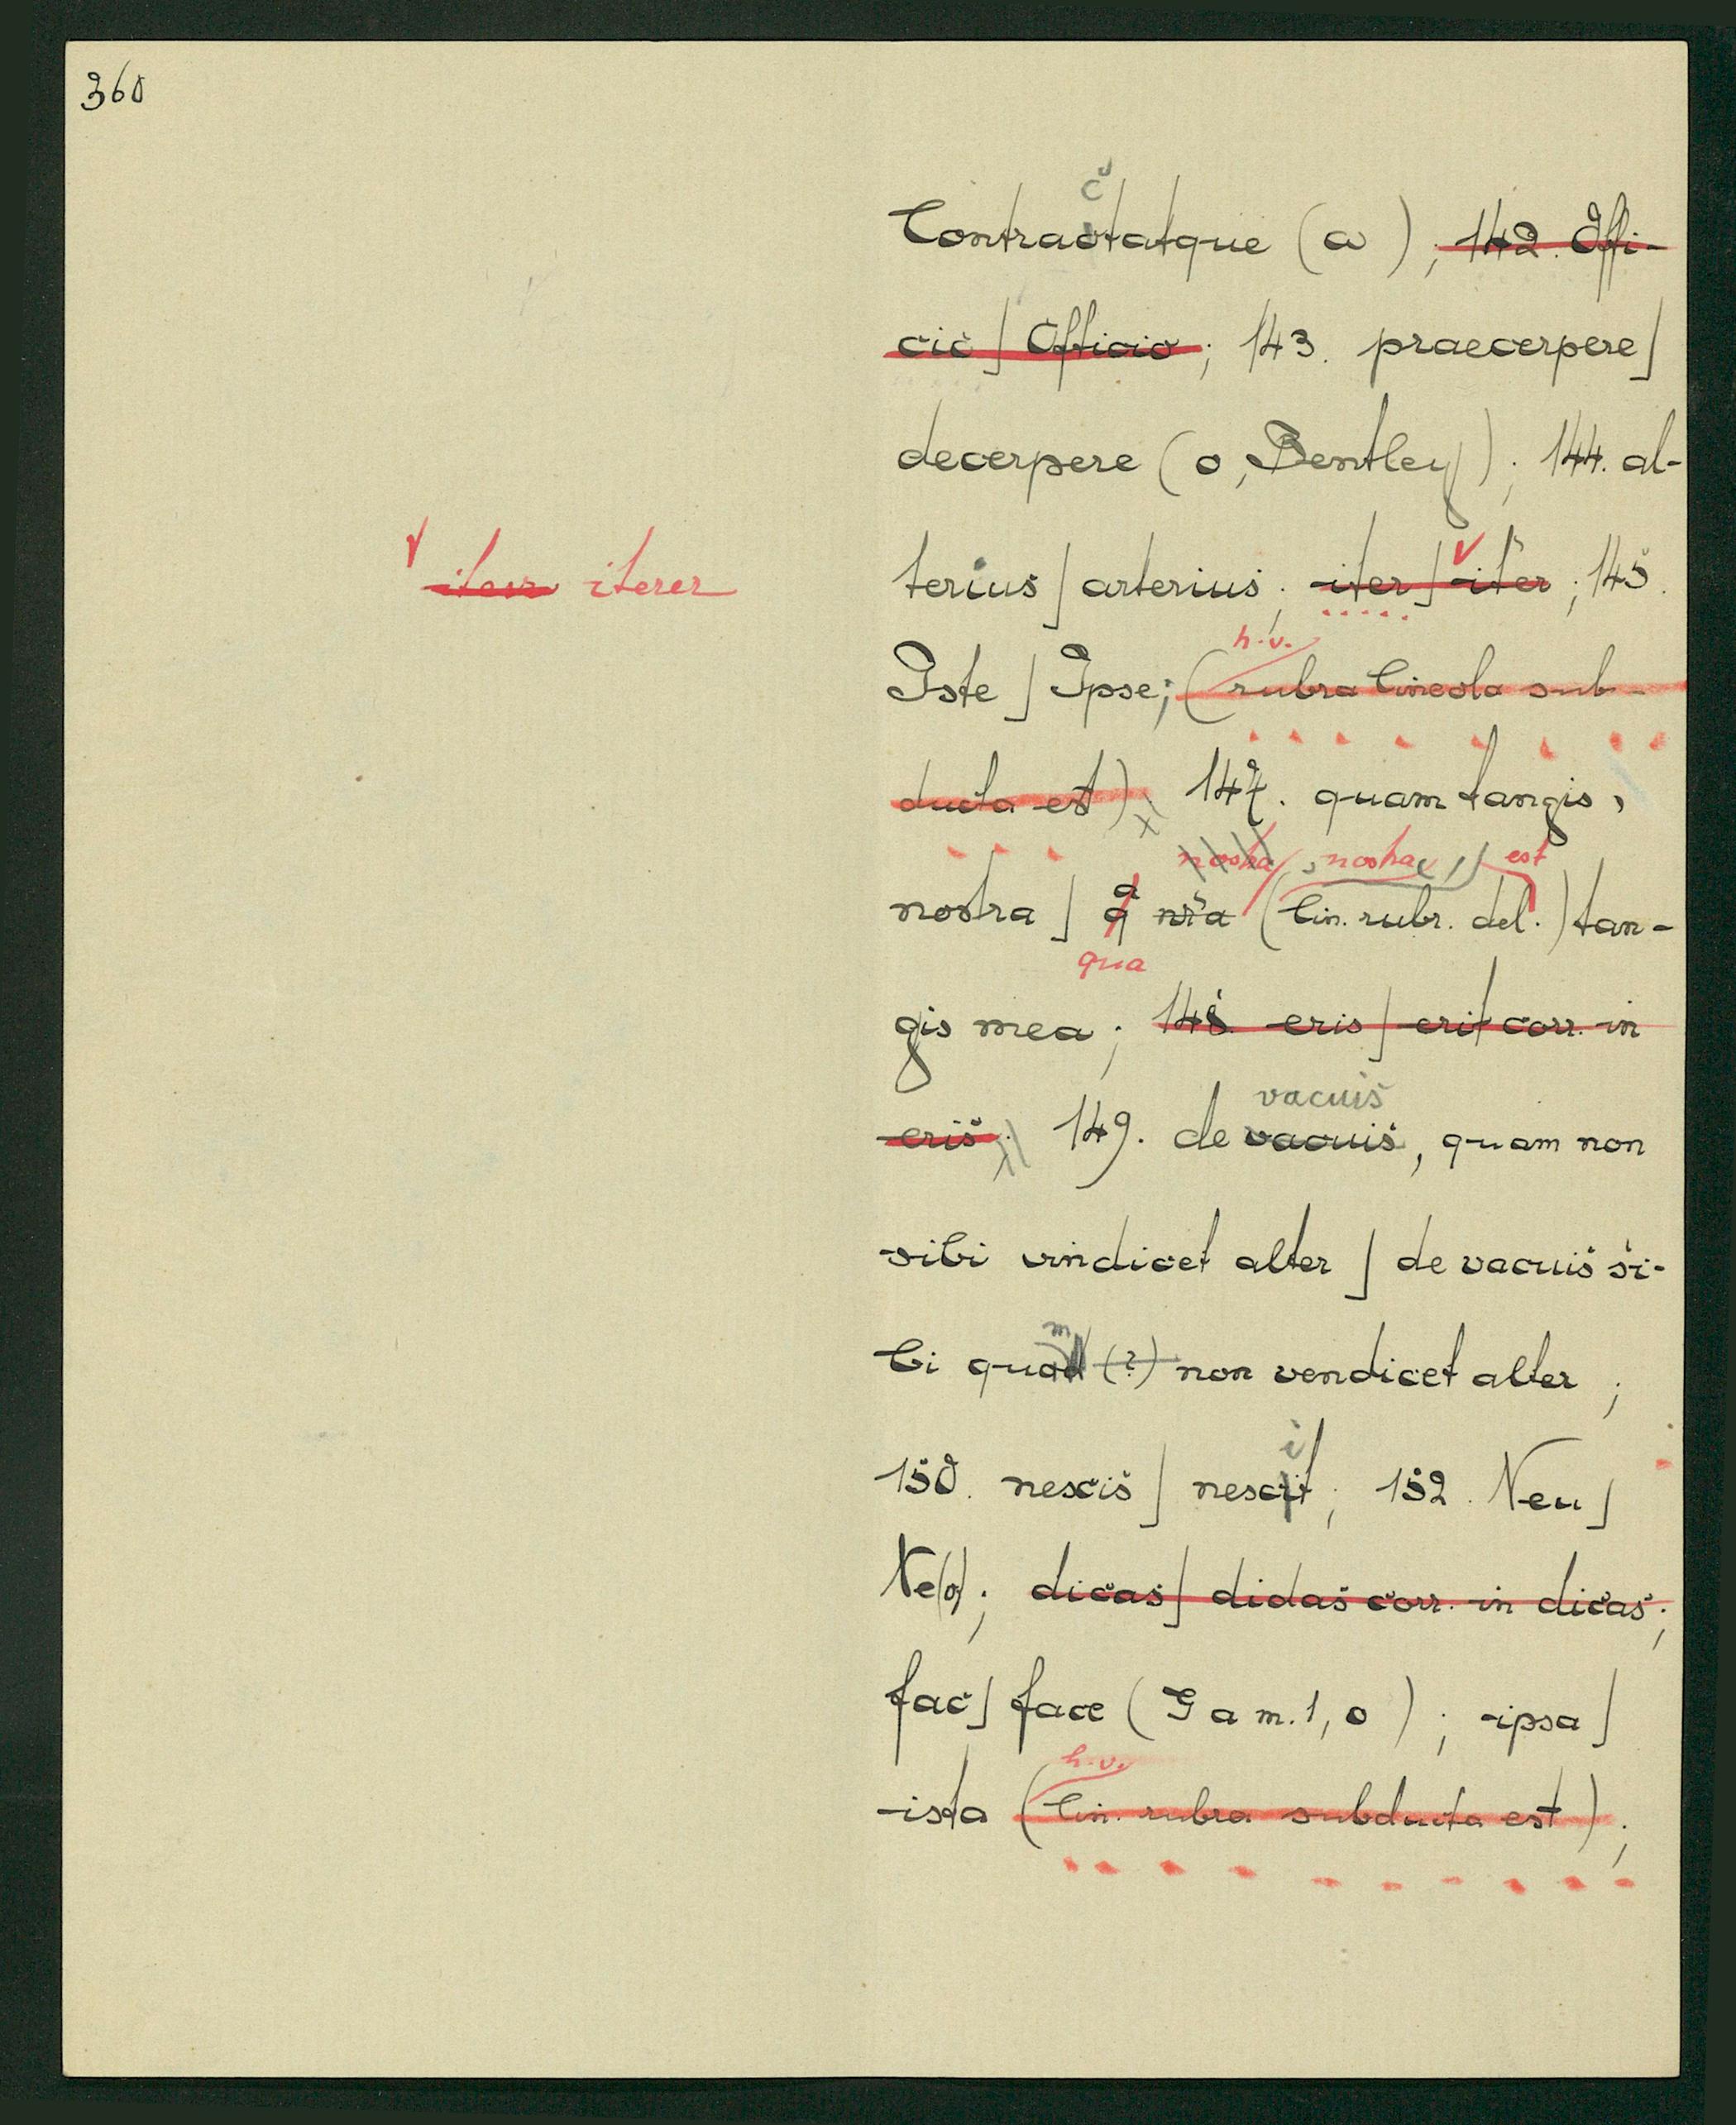 360
c
Contractatque (a); 142. Offi-
cio] Officio; 143. praecerpere]
decerpere (o, Bentley); 144. al-
iterer
terius] arterius; iter] iter; 145.
h.v.
Iste] Ipse; (rubra lineola sub-
ducta est); 147. quam tangis,
nostra, nostra est
nostra] q nra (lin. rubr. del.) tan-
qua
gis mea; 148. eris] erit corr. in
vacuis
eris; 149. de vacuis, quam non
sibi vindicet alter] de vacuis si-
m
bi quod (?) non vendicet alter;
i
150. nescis] nescit; 152. Neu]
Ne (o); dicas] didas corr. in dicas;
fac] face (G a m. 1, o); ipsa]
h.v.
ista (lin. rubra subducta est);